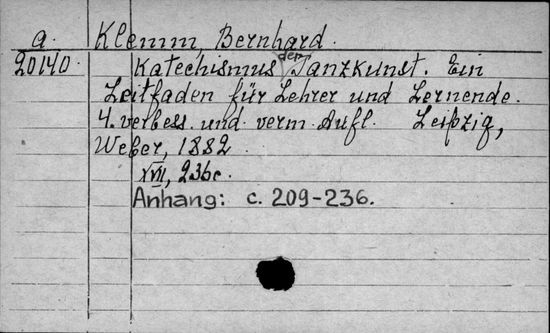 a. Klemm, Bernhard.
20140. Katechismus der Tanzkunst. Ein
Leitfaden für Lehrer und Lernende.
4. verbess. und verm. Aufl. Leipzig,
Weber, 1882.
XVII, 236 c.
Anhang: c. 209-236.